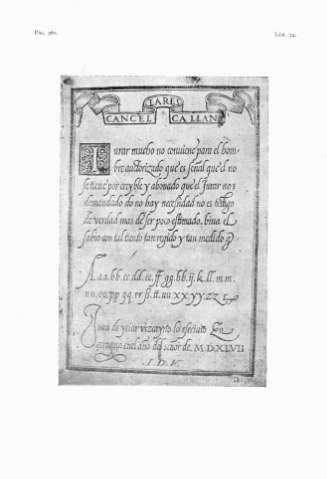 Pág. 360.
Lám. 72.
LARES
CANCEL CALLAN
Iurar mucho no conuiene para el hom-
bre autorizado que es señal que el no
se tiene por creyble y abonado que el Jurar no
demandado do no hay necesidad no es testigo
de verdad mas de ser poco estimado, biua el
sabio con tal tiento tan regido y tan medido
A a.a. bb. cc. dd. ee. ff. gg. hh. ij. k. ll. mm.
nn. oo. pp. qq. rr. ſſ. tt. uu. xx yy. zz
Juan de yciar vizcayno lo escriuio En
çaragoça en el año del señor de. M.D.XLVII
.I.D.V.